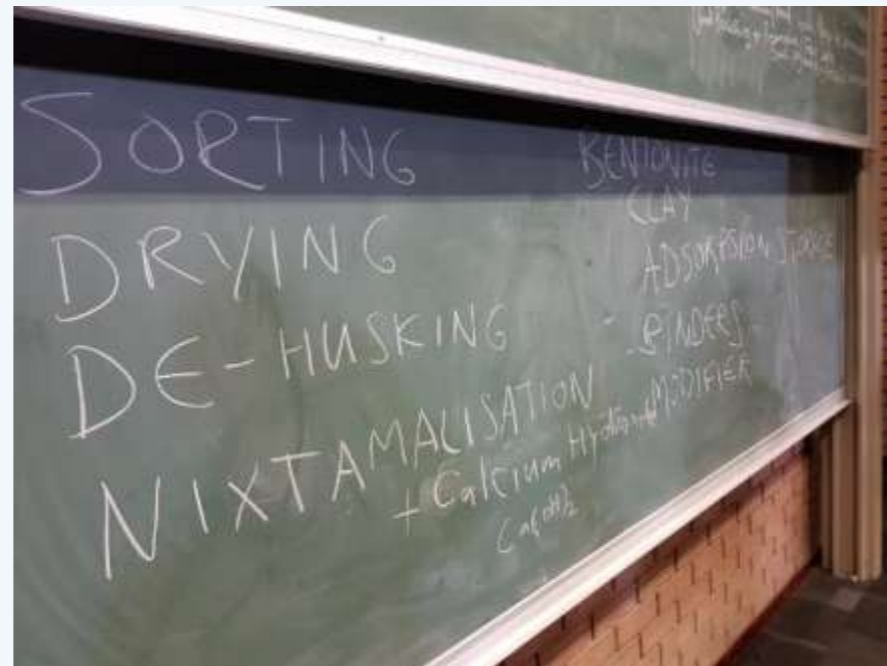 SORTING
DRYING
DE-HUSKING
NIXTAMALISATION
+ Calcium Hydroxid
Ca(OH)2
BENTONITE
CLAY
ADSORPSION STORAGE
- BINDERS -
MODIFIER